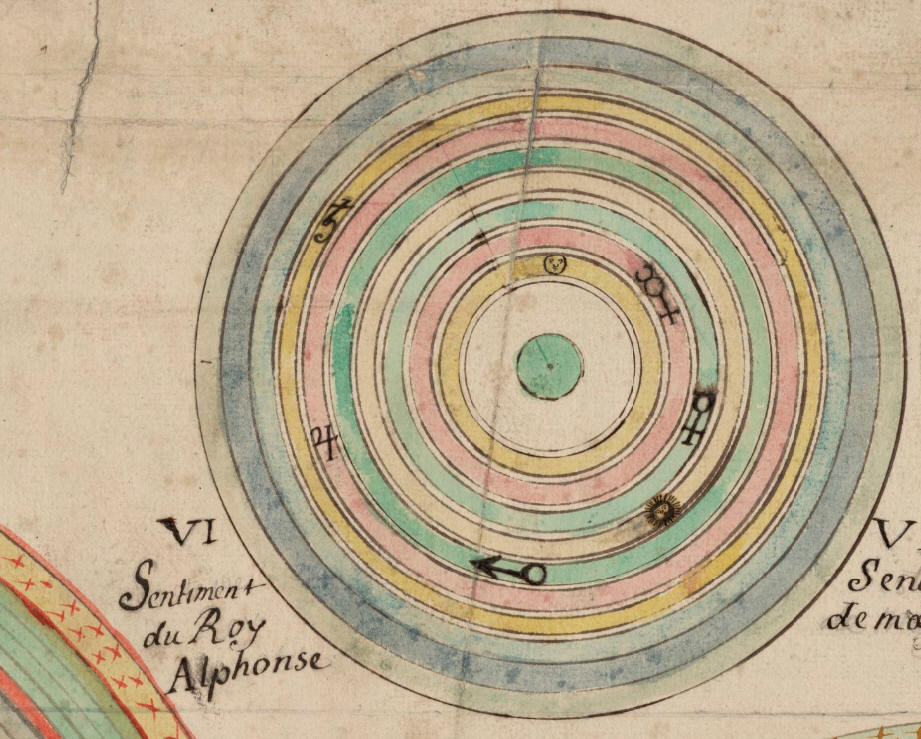 VI
Sentiment
du Roy
Alphonse
V
Sen
de mo